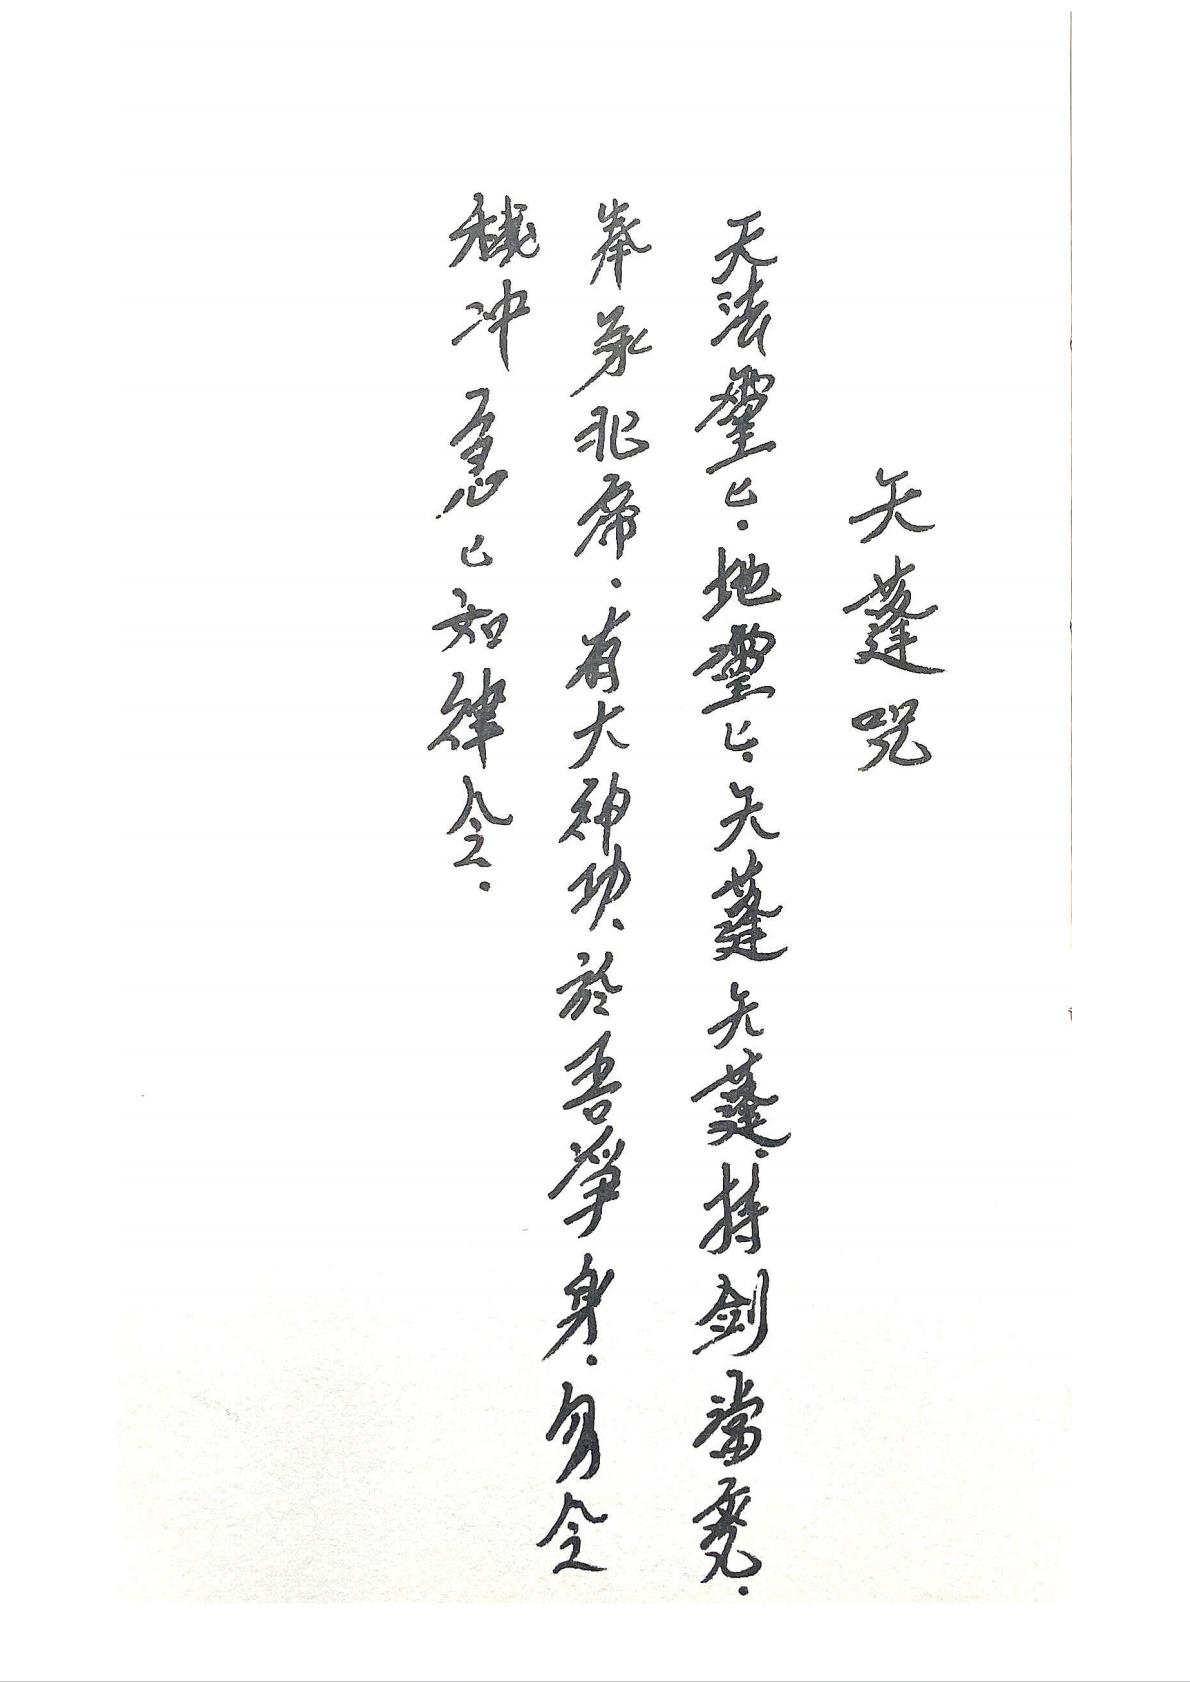 天蓬咒
天法靈〻.地靈〻.天蓬天蓬.持剑當凳.
奉承北帝.有大神功.於吾淨身.勿令
穢冲急〻如律令.